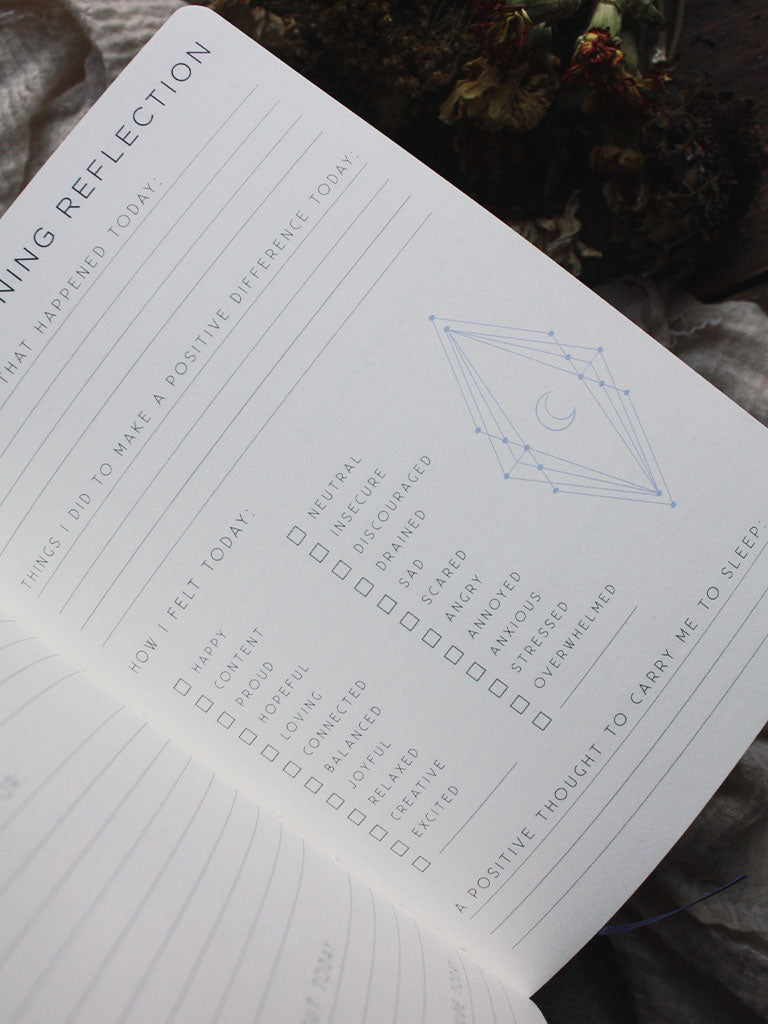 NING REFLECTION
THAT HAPPENED TODAY:
THINGS I DID TO MAKE A POSITIVE DIFFERENCE TODAY:
HOW I FELT TODAY:
HAPPY
CONTENT
PROUD
HOPEFUL
LOVING
CONNECTED
BALANCED
JOYFUL
RELAXED
CREATIVE
EXCITED
NEUTRAL
INSECURE
DISCOURAGED
DRAINED
SAD
SCARED
ANGRY
ANNOYED
ANXIOUS
STRESSED
OVERWHELMED
A POSITIVE THOUGHT TO CARRY ME TO SLEEP: